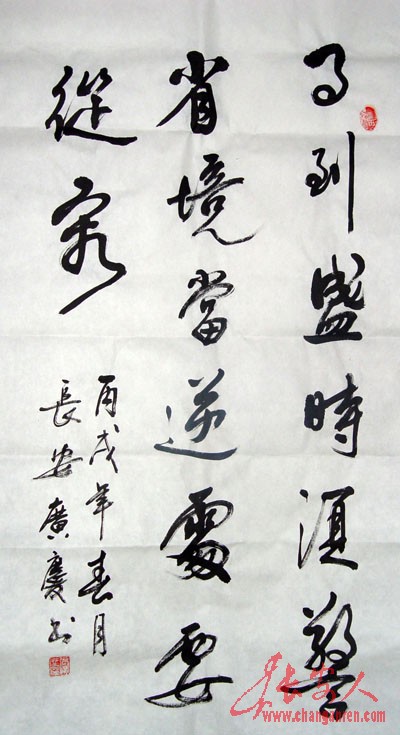 事到盛時須警
省境當逆處要
從容
丙戌年春月
長安廣慶書
長安人
www.changanren.com